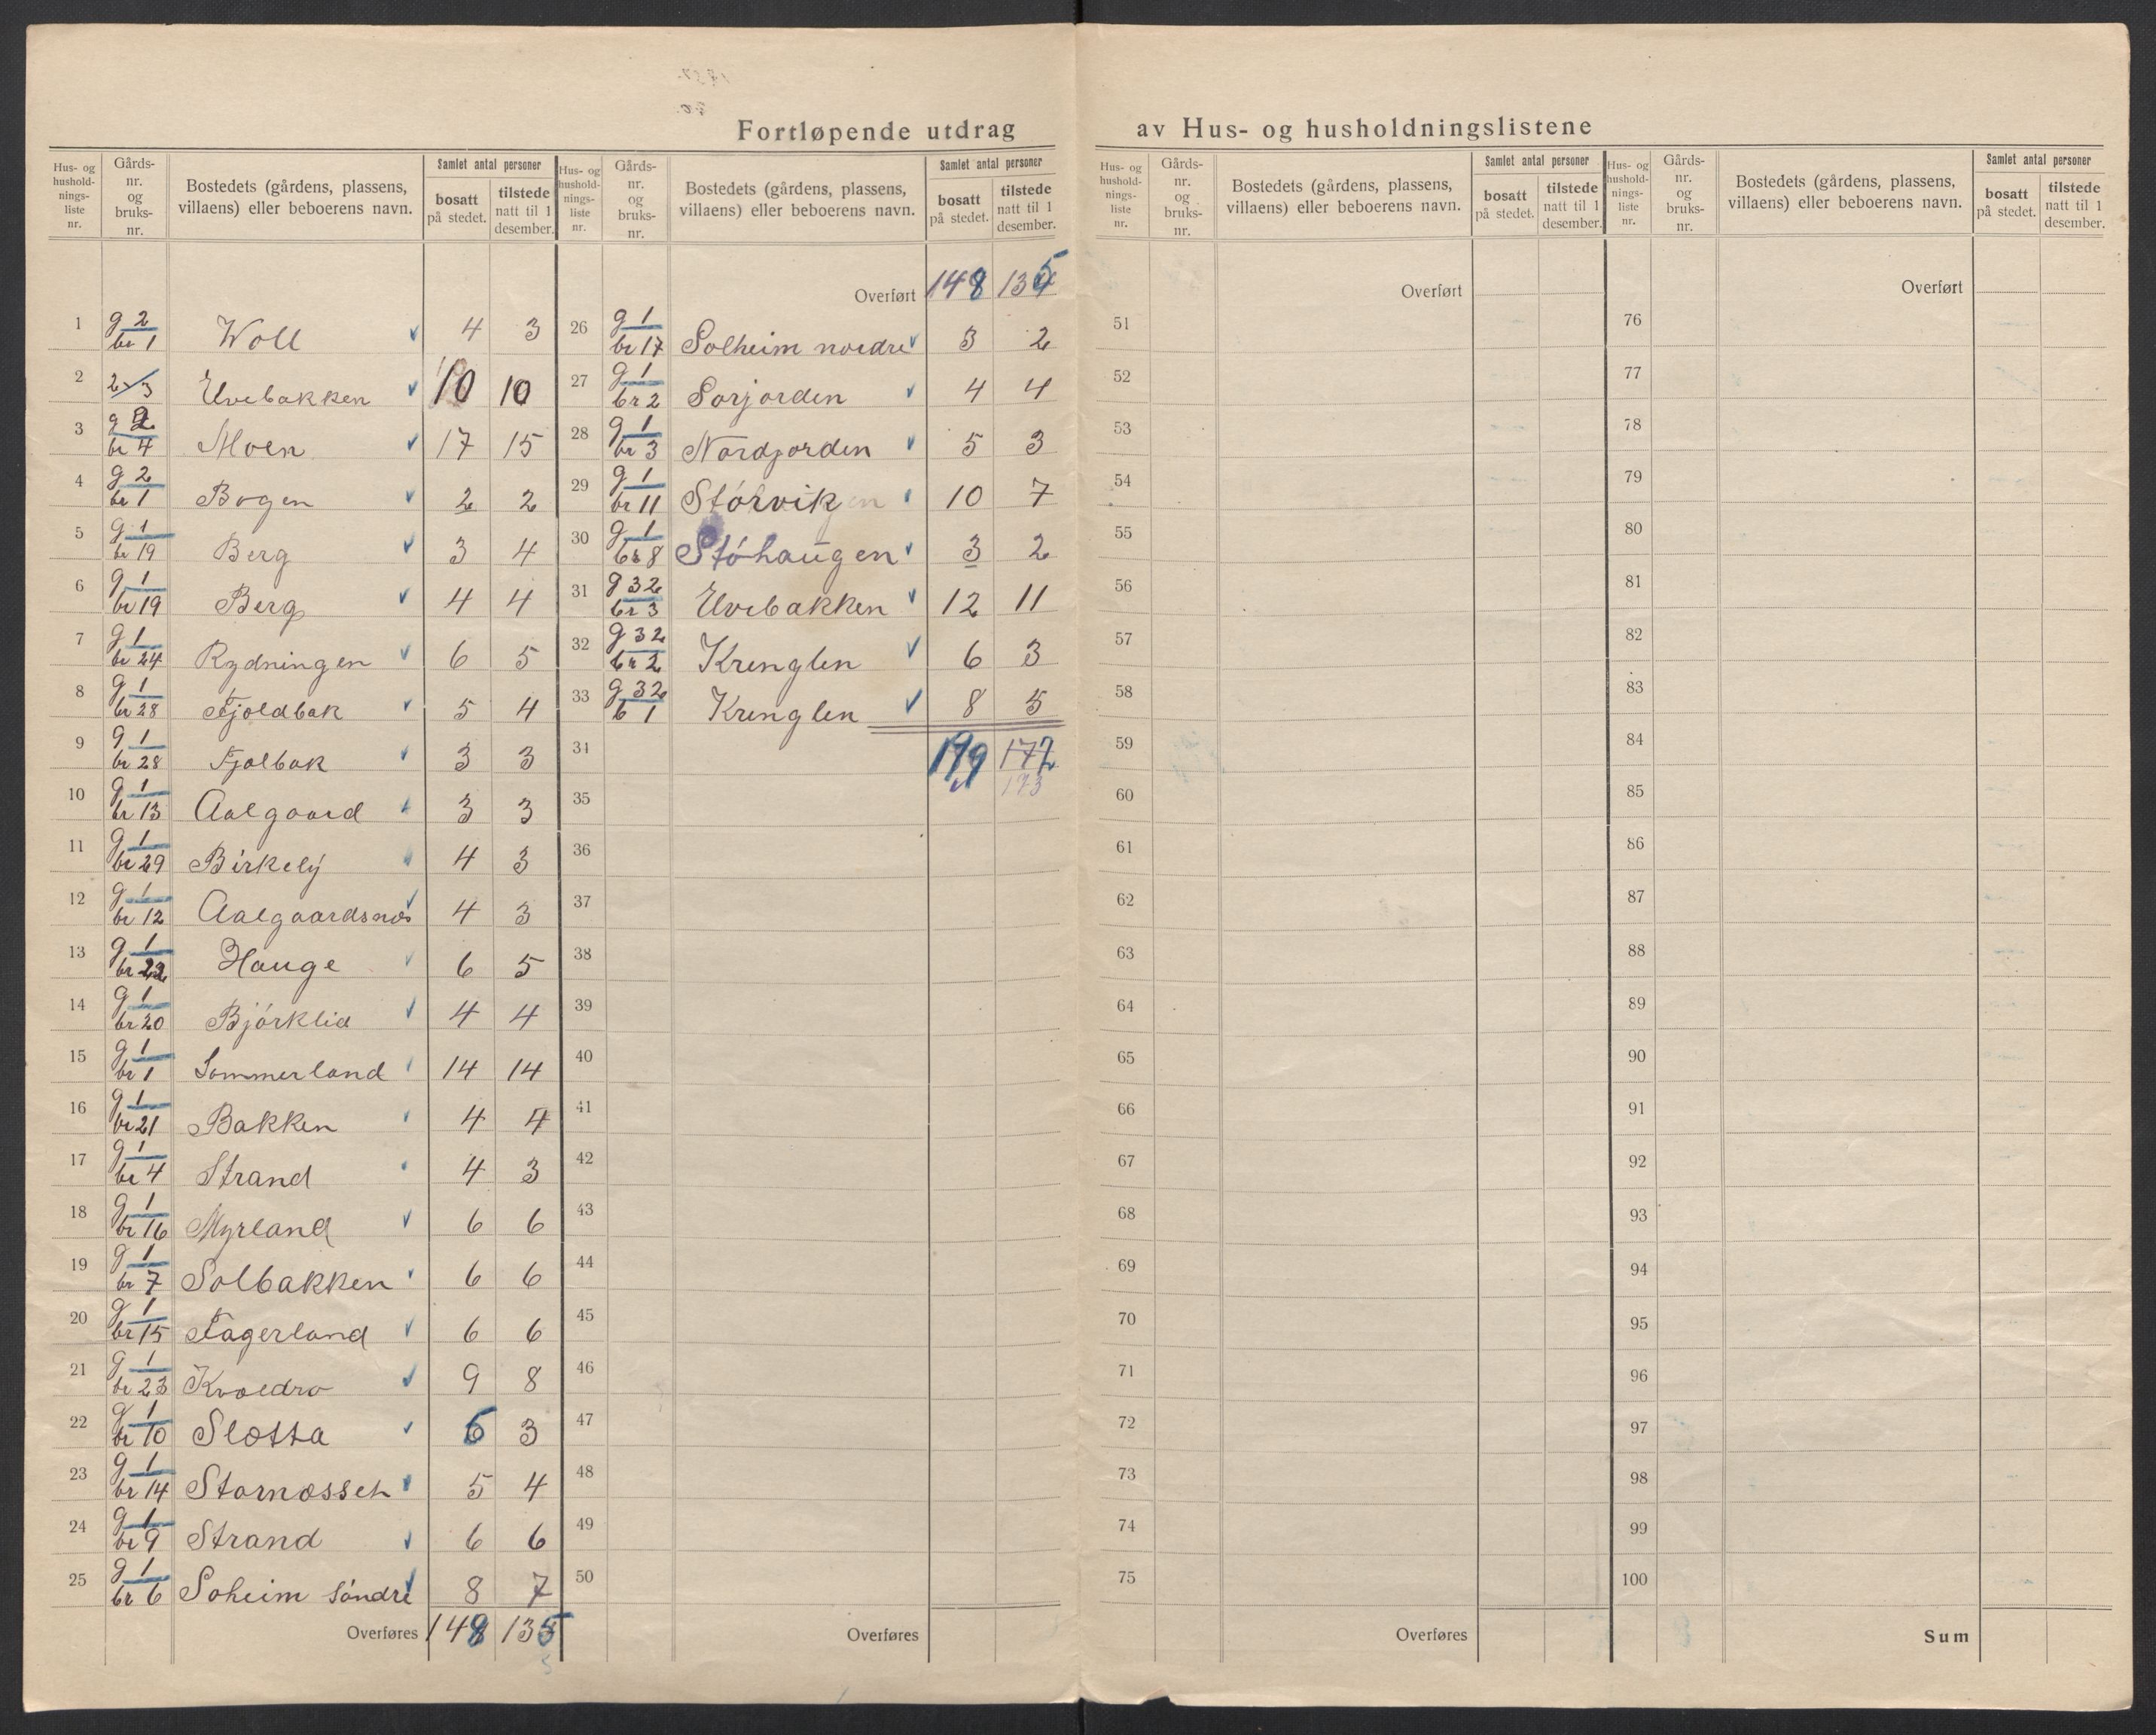 Fortløpende utdrag av Hus- og husholdningslistene
Hus- og hushold- nings- liste nr. | Gårds- nr. og bruks- nr. | Bostedets (gårdens, plassens, villaens) eller beboerens navn. | Samlet antal personer | bosatt på stedet. | tilstede natt til 1 desember.
1 g 2 br 1 Woll 4 3
2 2/3 Elvebakken 10 10
3 g 2 br 4 Moen 17 15
4 g 2 br 1 Bogen 2 2
5 g 1 br 19 Berg 3 4
6 g 1 br 19 Berg 4 4
7 g 1 br 24 Rydningen 6 5
8 g 1 br 28 Fjoldbak 5 4
9 g 1 br 28 Fjolbak 3 3
10 g 1 br 13 Aalgaard 3 3
11 g 1 br 29 Birkely 4 3
12 g 1 br 12 Aalgaardsnes 4 3
13 g 1 br 22 Hauge 6 5
14 g 1 br 20 Bjórklid 4 4
15 g 1 br 1 Sommerland 14 14
16 g 1 br 21 Bakken 4 4
17 g 1 br 4 Strand 4 3
18 g 1 br 16 Myrland 6 6
19 g 1 br 7 Solbakken 6 6
20 g 1 br 15 Fagerland 6 6
21 g 1 br 23 Kvoedro 9 8
22 g 1 br 10 Sletta 6 3
23 g 1 br 14 Stornessen 5 4
24 g 1 br 9 Strand 6 6
25 g 1 br 6 Soheim sóndre 8 7
Overføres 148 135
Hus- og hushold- nings- liste nr. | Gårds- nr. og bruks- nr. | Bostedets (gårdens, plassens, villaens) eller beboerens navn. | Samlet antal personer | bosatt på stedet. | tilstede natt til 1 desember.
Overført 148 135
26 g 1 br 17 Solheim nordre 3 2
27 g 1 br 2 Sorjorden 4 4
28 g 1 br 3 Nordjorden 5 3
29 g 1 br 11 Stórviken 10 7
30 g 1 br 8 Stóhaugen 3 2
31 g 32 br 3 Elvebakken 12 11
32 g 32 br 2 Krenglen 6 3
33 g 32 b 1 Krenglen 8 5
34 199 172
173
35
36
37
38
39
40
41
42
43
44
45
46
47
48
49
50
Overføres
Hus- og hushold- nings- liste nr. | Gårds- nr. og bruks- nr. | Bostedets (gårdens, plassens, villaens) eller beboerens navn. | Samlet antal personer | bosatt på stedet. | tilstede natt til 1 desember.
Overført
51
52
53
54
55
56
57
58
59
60
61
62
63
64
65
66
67
68
69
70
71
72
73
74
75
Overføres
Hus- og hushold- nings- liste nr. | Gårds- nr. og bruks- nr. | Bostedets (gårdens, plassens, villaens) eller beboerens navn. | Samlet antal personer | bosatt på stedet. | tilstede natt til 1 desember.
Overført
76
77
78
79
80
81
82
83
84
85
86
87
88
89
90
91
92
93
94
95
96
97
98
99
100
Sum